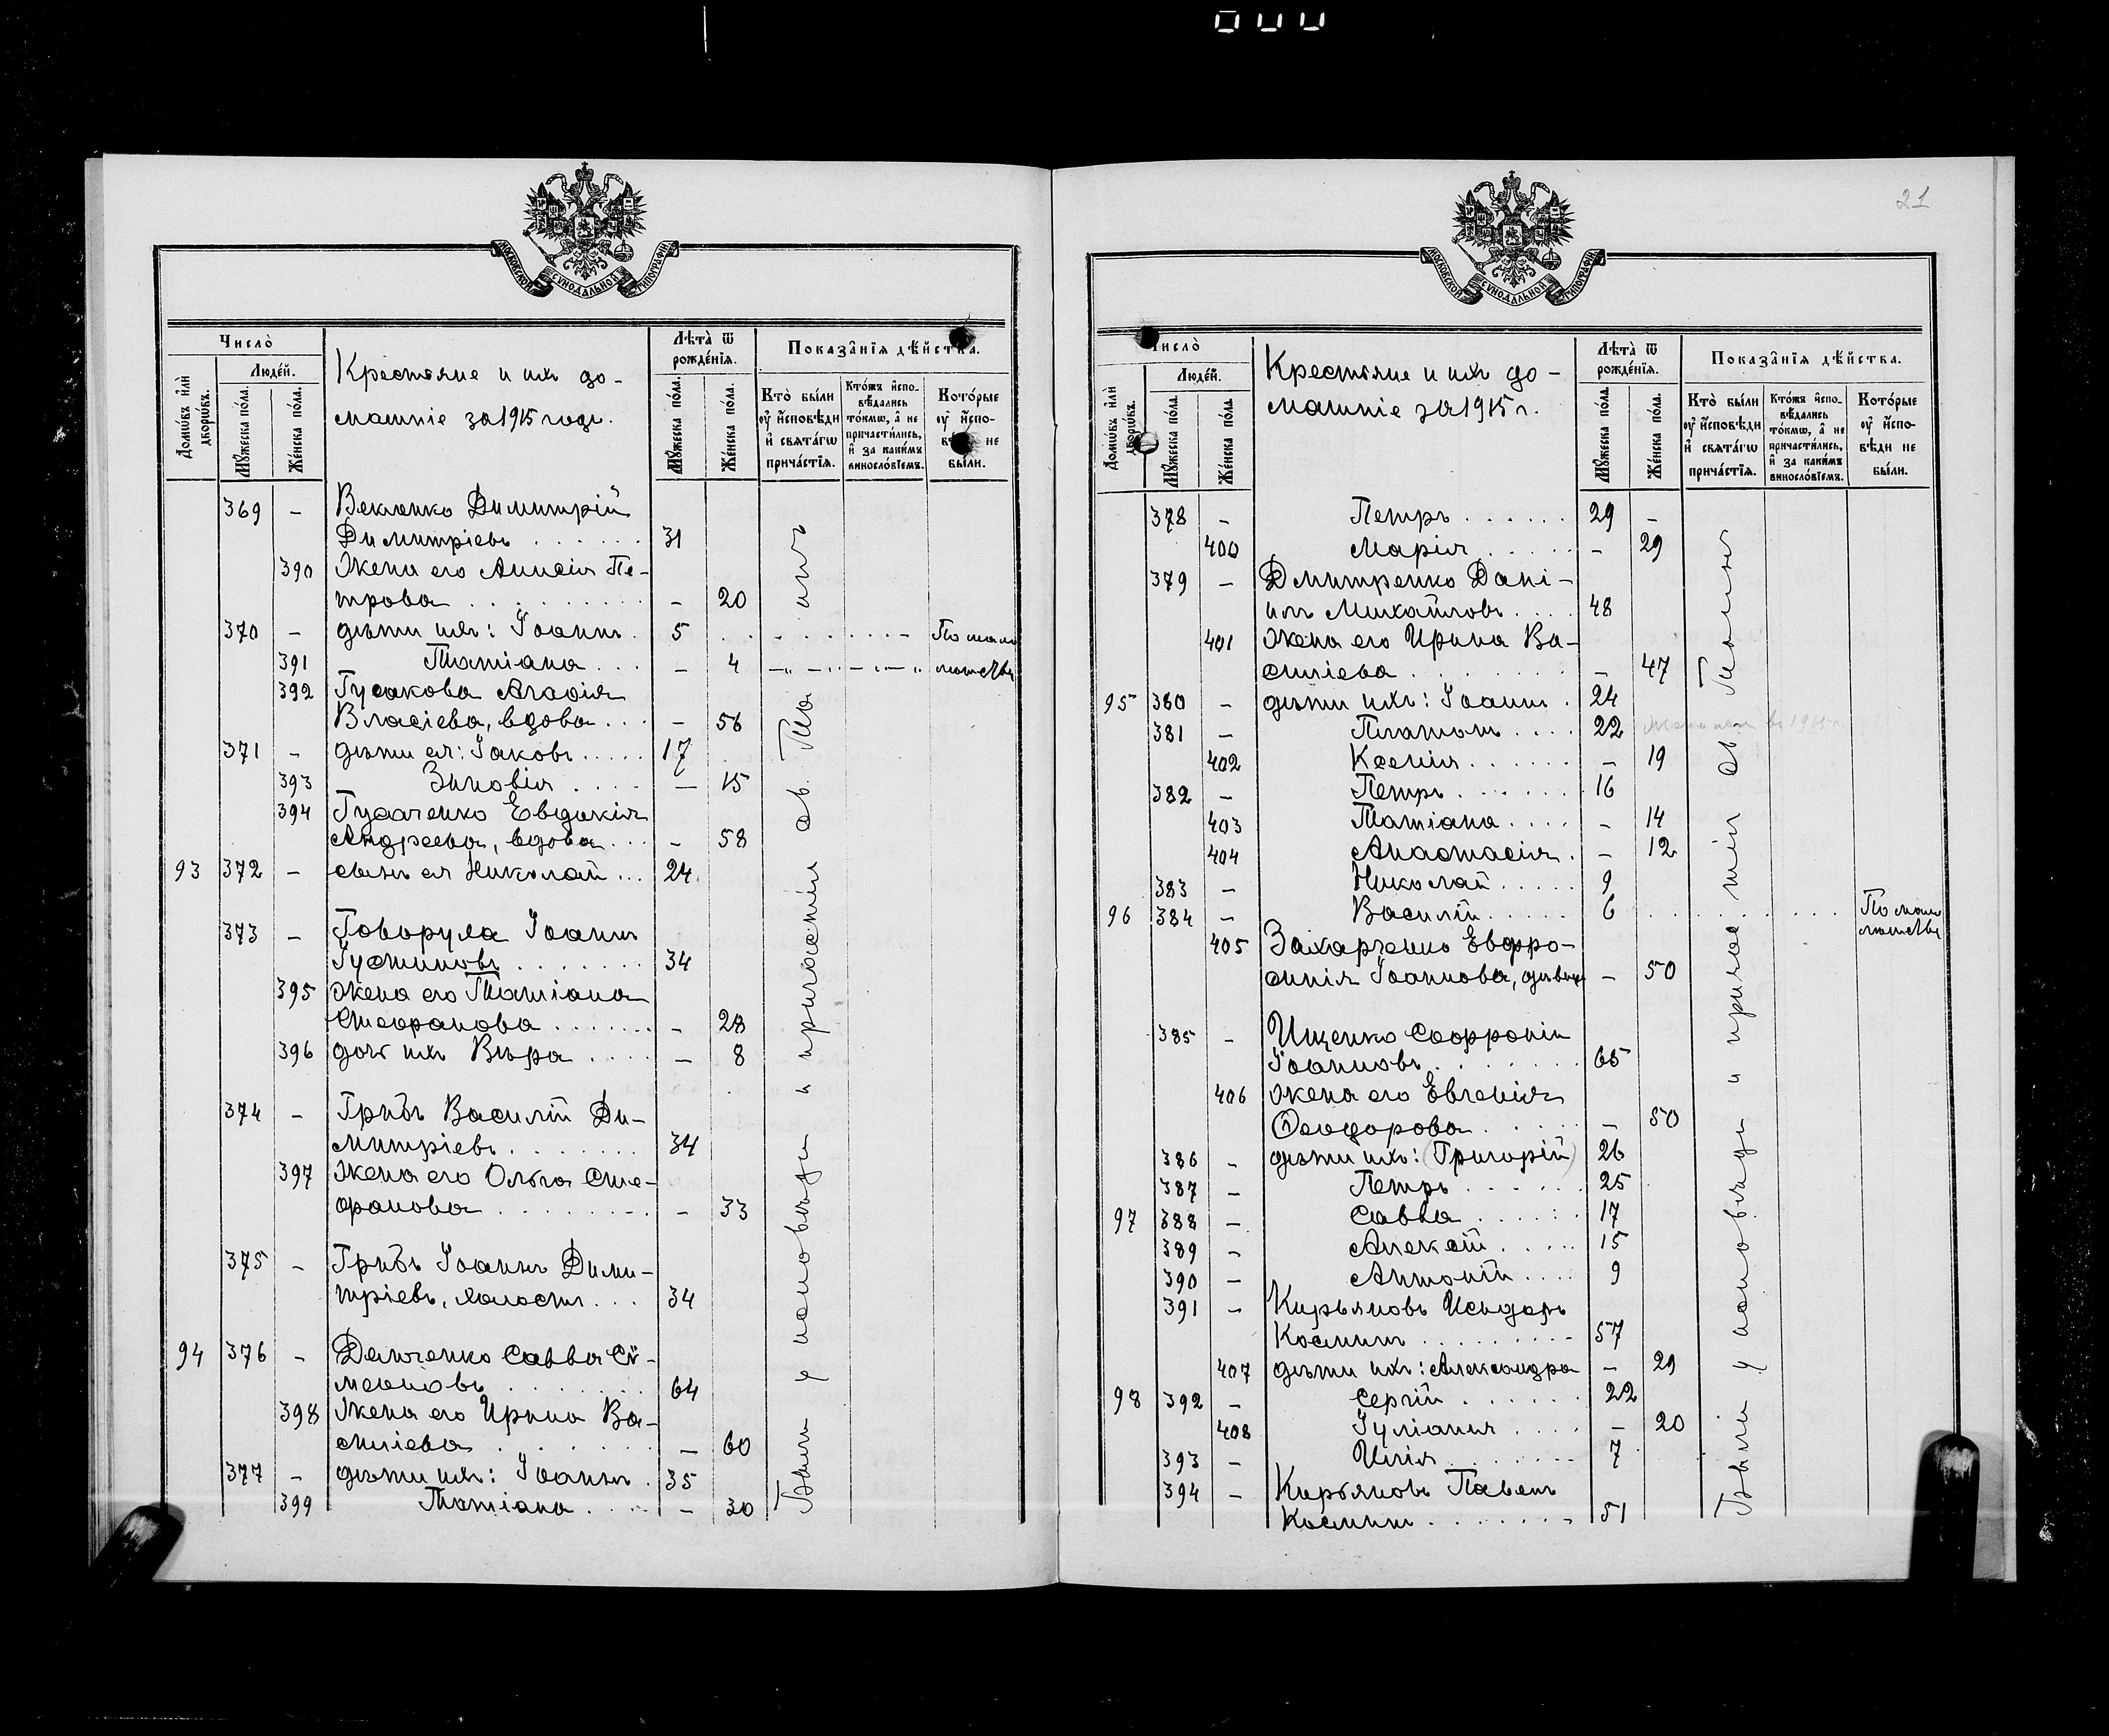 МОСКОВСКОЙ СѴНОДАЛЬНОЙ ТИПОГРАФІИ
Число̀
Домѡ́въ и҆лѝ дворѡ́въ.
Люде́й.
Мꙋ́жеска по́ла.
Же́нска по́ла.
Крестьяне и ихъ до-
машніе за 1915 годъ.
Лѣта̀ ѿ рожде́нїѧ.
Мꙋ́жеска по́ла.
Же́нска по́ла.
Показа̂нїѧ дѣ́йства.
Кто̀ бы́ли ᲂу҆ и҆́сповѣди и҆ свѧта́гѡ прича́стїѧ.
Кто́жъ и҆спо-
вѣ́дались то́кмѡ, а҆ не причасти́лись, и҆ за каки́мъ виносло́вїемъ.
Кото́рые ᲂу҆ и҆́спо-
вѣди не бы́ли.
369 - Векленко Димитрій
Димитріевъ . . . . . . 31
390 Жена его Анисія Пе-
трова . . . . . . . . . - 20
370 - дѣти ихъ: Іоаннъ . 5 . . . . . . . - По мало
391 Татіана . . . - 4 лѣтству
392 Гусакова Агафія
Власіева, вдова . . . - 56
371 - дѣти ея: Іаковъ . . . . . 17
393 Зиновія . . . . - 15
394 Гусаченко Евдокія
Андреева, вдова . . . - 58
93 372 - сынъ ея Николай . . . 24
373 - Говоруха Іоаннъ
Іустиновъ . . . . . . . 34
395 жена его Татіана
Стефанова . . . . . . . - 28
396 дочь ихъ Вѣра . . . . - 8
374 - Грибъ Василій Ди-
митріевъ . . . . . . . . 34
397 Жена его Ольга Сте-
фанова . . . . . . . . . - 33
375 - Грибъ Іоаннъ Дими-
тріевъ, холостъ . . . 34
94 376 - Демченко Савва Сѵ-
меоновъ . . . . . . . . 64
398 Жена его Ирина Ва-
силіева . . . . . . . . - 60
377 - дѣти ихъ: Іоаннъ . 35
399 Татіана . . . . - 30
Были у исповѣди и причастія св. Таинъ
21
МОСКОВСКОЙ СѴНОДАЛЬНОЙ ТИПОГРАФІИ
Число̀
Домѡ́въ и҆лѝ дворѡ́въ.
Люде́й.
Мꙋ́жеска по́ла.
Же́нска по́ла.
Крестьяне и ихъ до-
машніе за 1915 г.
Лѣта̀ ѿ рожде́нїѧ.
Мꙋ́жеска по́ла.
Же́нска по́ла.
Показа̂нїѧ дѣ́йства.
Кто̀ бы́ли ᲂу҆ и҆́сповѣди и҆ свѧта́гѡ прича́стїѧ.
Кто́жъ и҆спо-
вѣ́дались то́кмѡ, а҆ не причасти́лись, и҆ за каки́мъ виносло́вїемъ.
Кото́рые ᲂу҆ и҆́спо-
вѣди не бы́ли.
378 - Петръ . . . . . . 29 -
400 Марія . . . . . - 29
379 - Дмитренко Дані-
илъ Михайловъ . . . . 48
401 Жена его Ирина Ва-
силіева . . . . . . . . - 47
95 380 - дѣти ихъ: Іоаннъ . 24
381 - Платонъ . . . . 22 въ 1915 г.
402 Ксенія . . . . . . - 19
382 - Петръ . . . . . . 16
403 Татіана . . . . - 14
404 Анастасія . - 12
383 - Николай . . . . . 9
96 384 - Василій . . . . . 6 . . . . . . . . По мало
лѣтству
405 Захарченко Евфро-
синія Іоаннова, дѣвица - 50
385 - Ищенко Софроній
Іоанновъ . . . . . . . . 65
406 жена его Евгенія
Ѳеодорова . . . . . - 50
386 - дѣти ихъ: (Григорій) 26
387 - Петръ . . . . . . 25
97 388 - Савва . . . . . . 17
389 - Алексій . . . . . 15
390 - Антоній . . . . 9
391 - Кирьяновъ Исидоръ
Косминъ . . . . . . . . . - 57
407 дѣти ихъ: Александра - 29
98 392 - Сергій . . . . . . 22
408 Іуліанія . . . . - 20
393 - Илія . . . . . . . 7
394 - Кирьяновъ Павелъ
Косминъ . . . . . . . - 51
Были у исповѣди и причастія св. Таинъ